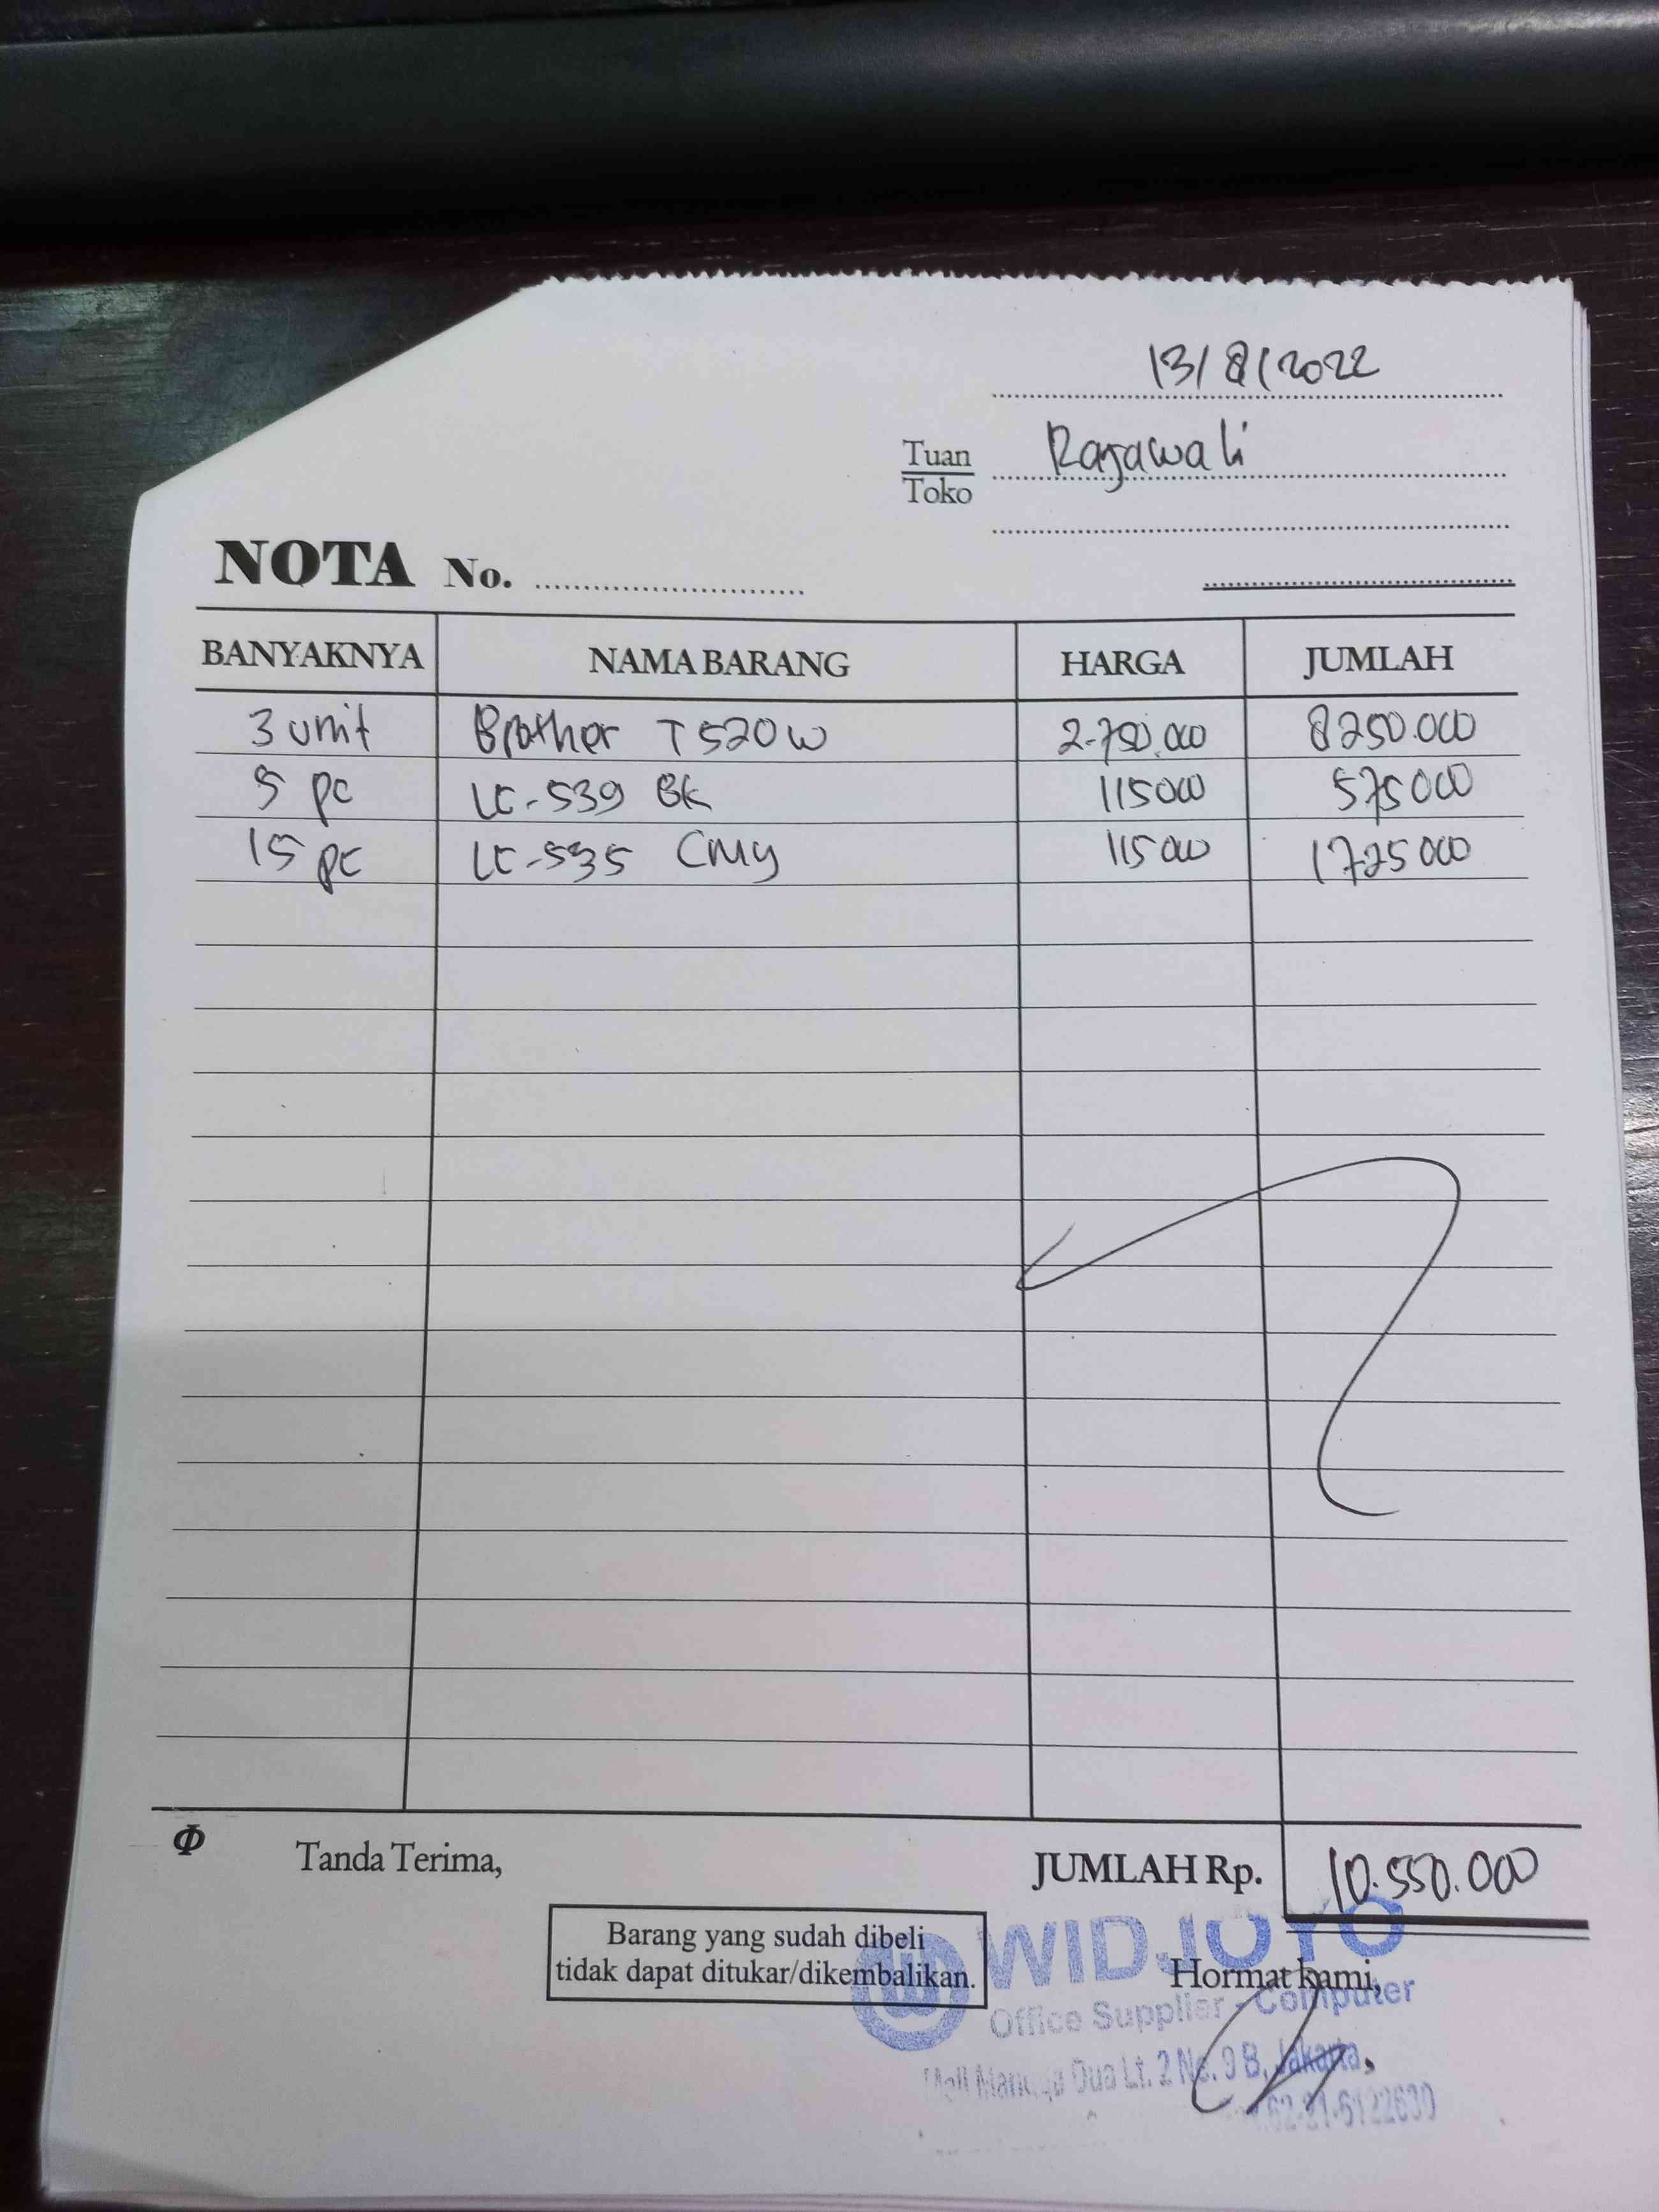 13/8/2022
Tuan Rajawali
Toko
NOTA No.
BANYAKNYA NAMA BARANG HARGA JUMLAH
3 unit Brother T520W 2.750.000 8250.000
5 pc LC-539 BK 115000 575000
15 pc LC-535 CMY 115000 1725000
Tanda Terima, JUMLAH Rp. 10.550.000
Barang yang sudah dibeli
tidak dapat ditukar/dikembalikan.
WIDJOYO
Hormat kami,
Office Supplier - Computer
Mall Mangga Dua Lt. 2 No. 9 B, Jakarta.